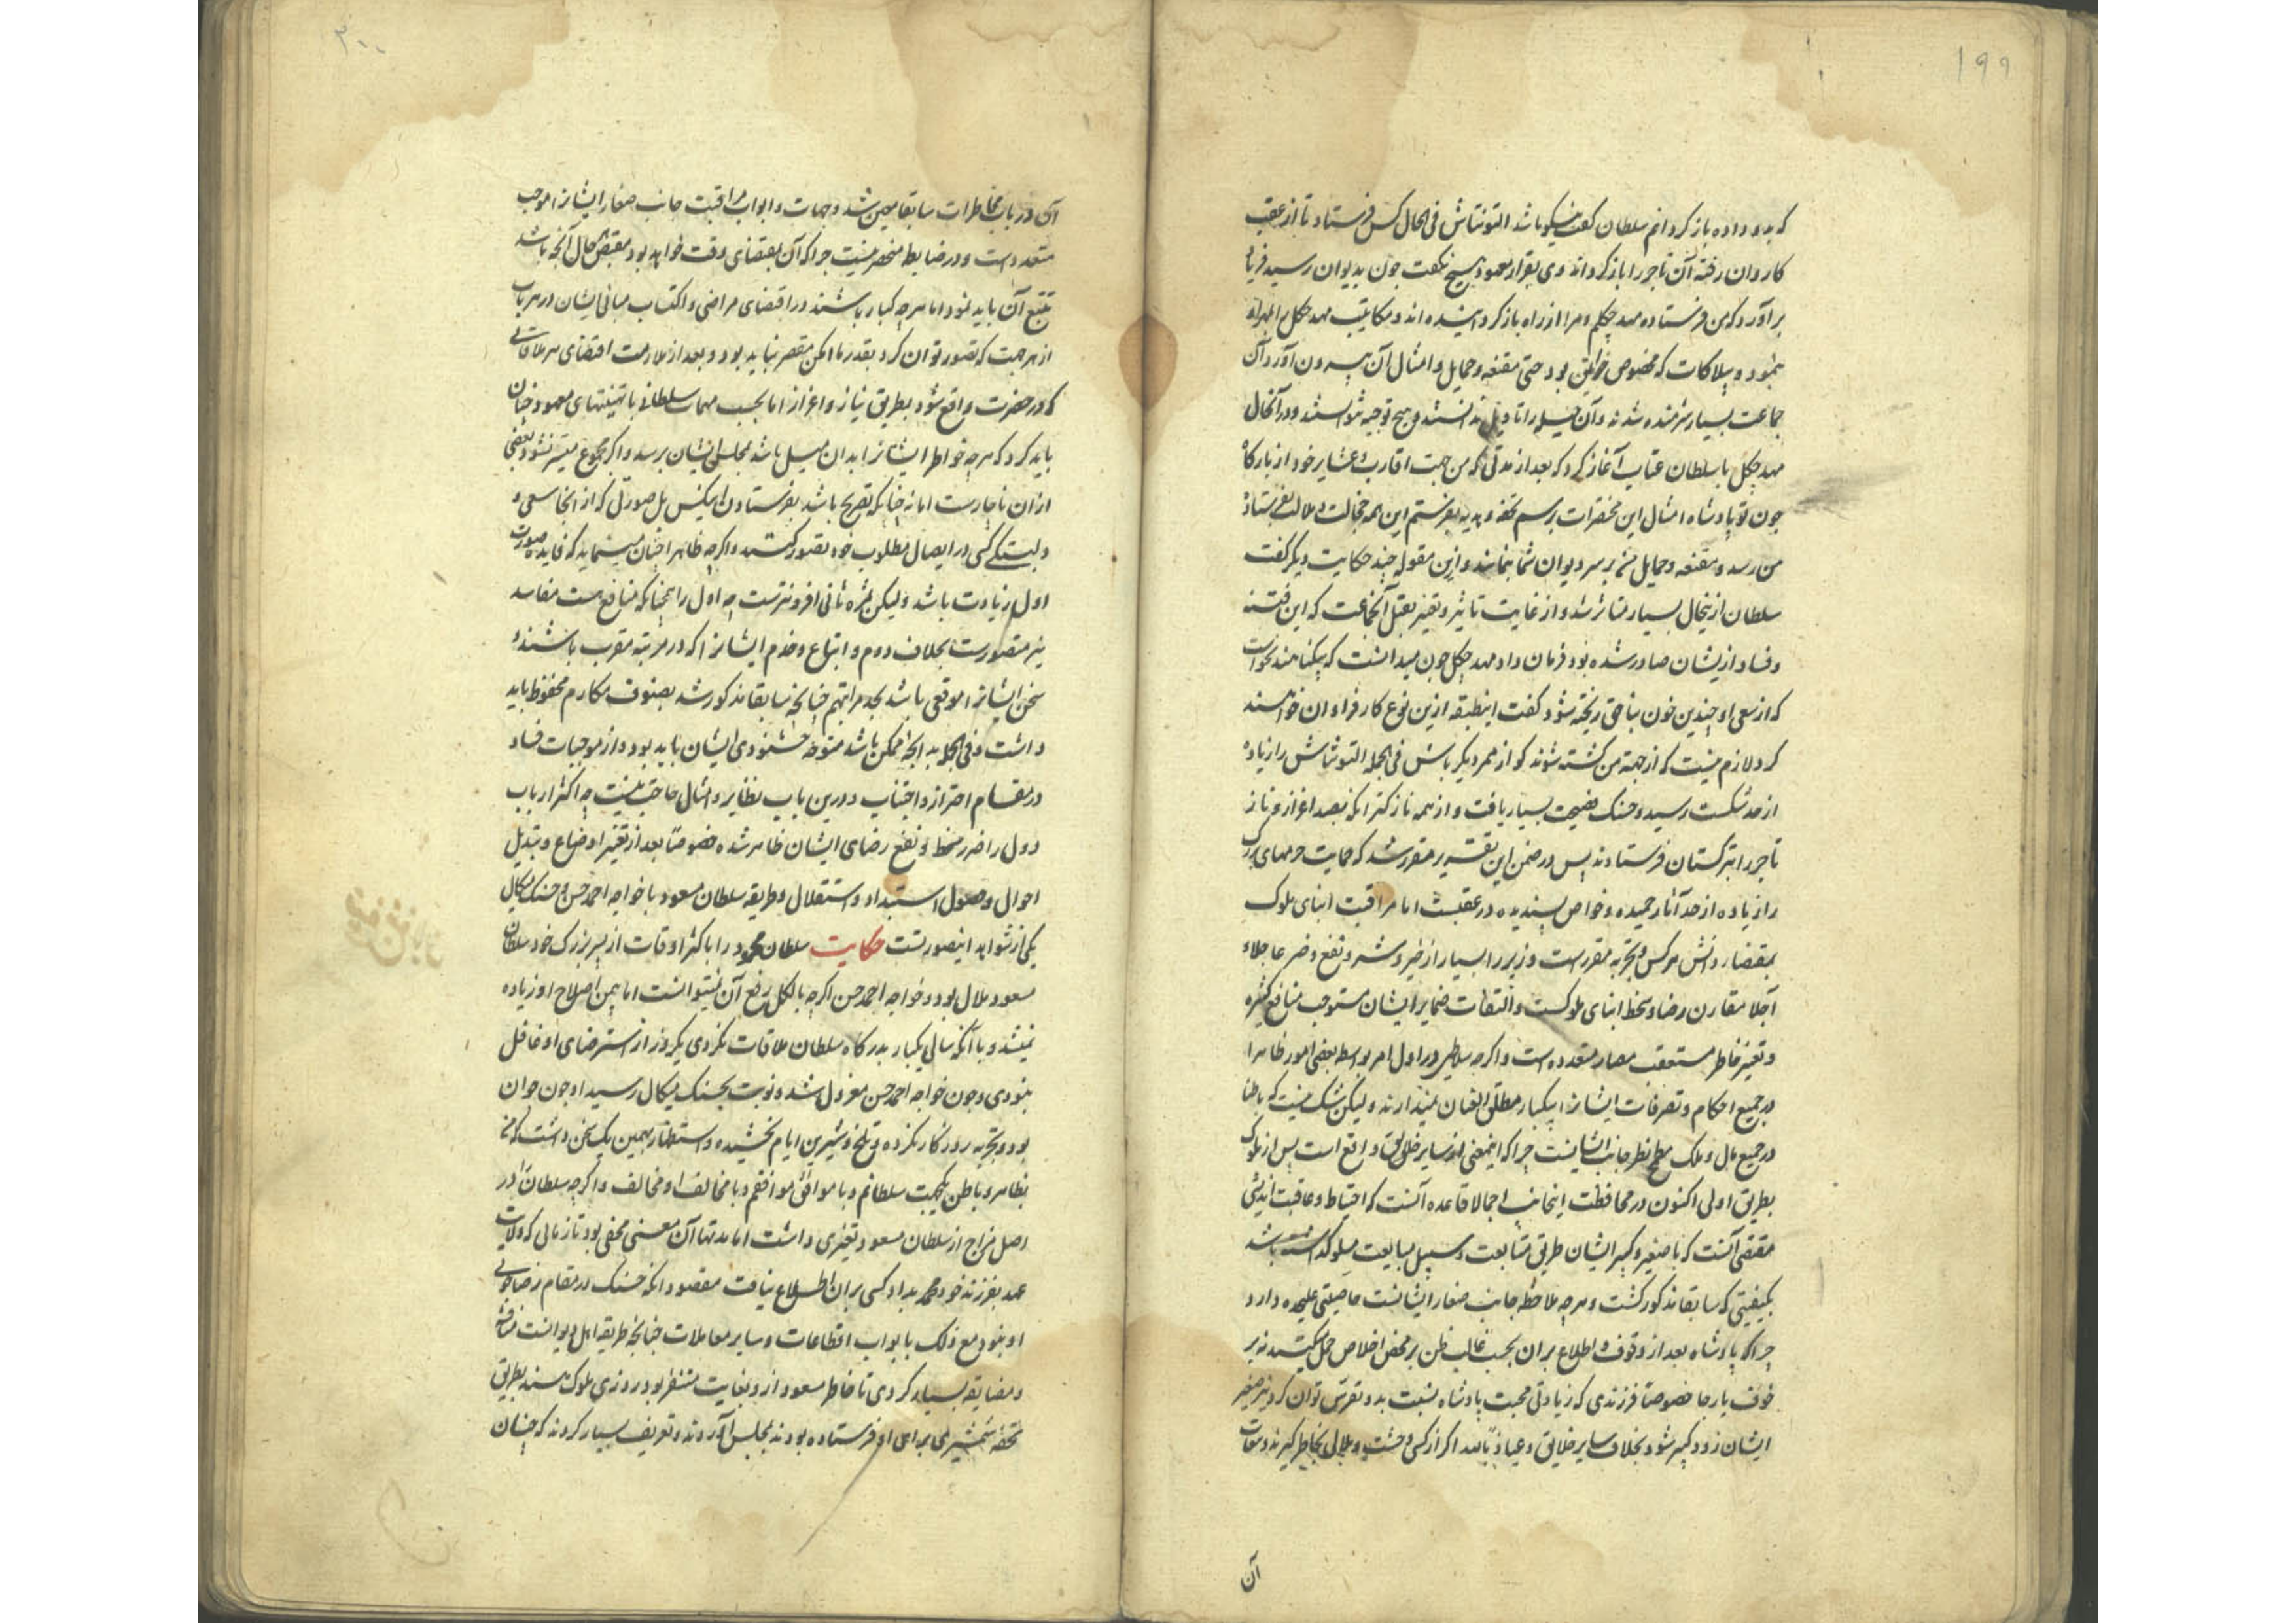 ۱۹۹
که بدو داده باز کردانم سلطان کفت نیکو باشد التونتاش فی الحال کس فرستاد تا از عقب
کاروان رفته آن تاجر را باز کرداند وی بقرار معهود هیچ نکفت چون بدیوان رسید فریاد
برآورد که من فرستاده مهد چکلم و مرا از راه باز کردانیده اند و مکاتیب مهد چکل
بنمود و بیلاکات که مخصوص خواتین بود حتی مقنعه و حمایل و امثال آن بیرون آورد آن
جماعت بسیار شرمنده شدند و آن حیله را تاویل ندانستند و هیچ توجیه نتوانستند و در آنحال
مهد چکل با سلطان عتاب آغاز کرد که بعد از مدتی که من جهت اقارب و عشایر خود از بارکاه
چون تو پادشاه امثال این مختصرات برسم تحفه و هدیه بفرستم این همه خجالت و ملالت بفرستاده
من رسد و مقنعه و حمایل من بر سر دیوان شما بنمایند و ازین مقوله چند حکایت دیکر کفت
سلطان ازینحال بسیار متاثر شد و از غایت تاثیر و تغیر بقتل آنجماعت که این فتنه
و فساد ازیشان صادر شده بود فرمان داد مهد چکل چون میدانست که بیکناهند نخواست
که از سعی او چندین خون بناحق ریخته شود کفت اینطبقه ازین نوع کار فراوان خواهند
کرد لازم نیست که از جهة من کشته شوند کو از ممر دیکر باش فی الجمله التونتاش را زیاده
از حد شکست رسید و حسنک فضیحت بسیار یافت و از همه نازکتر آنکه بصد اعزاز و ناز
تاجر را بترکستان فرستادند پس در ضمن این تقریر مقرر شد که حمایت حرمهای بزرک
را زیاده از حد آثار حمیده و خواص پسندیده در عقبست اما مراقبت ابنای ملوک
بمقتضاء دانش هر کس و تجربه مقررست وزیر را بسیار از خیر و شر و نفع و ضر عاجلاً و
آجلاً مقارن رضا و سخط ابنای ملوکست و التفات ضمایر ایشان مستوجب منافع کثیره
و تغیر خاطر مستعقب مضار متعدده است و اکرچه سلاطین در اول امر بواسطه بعضی امور ظاهرا
در جمیع احکام و تصرفات ایشانرا بیکبار مطلق العنان نمیدارند و لیکن شک نیست که باطنا
در جمیع مال و ملک مطمح نظر جانب ایشانست چرا که اینمعنی از سایر خلایق واقع است پس از ملوک
بطریق اولی اکنون در محافظت اینجانب اجمالا قاعده آنست که احتیاط و عاقبت اندیشی
مقتضی آنست که با صغیر و کبیر ایشان طریق متابعت و سبیل مبایعت مسلوک داشته باشد
بکیفیتی که سابقا مذکور کشت و هرچه ملاحظه جانب صغار ایشانست خاصیتی علیحده دارد
چرا که پادشاه بعد از وقوف و اطلاع بران بحسب غالب ظن بر محض اخلاص حمل میکند نه بر
خوف یا رجا خصوصاً فرزندی که زیادتی محبت پادشاه نسبت بدو تفرس توان کرد و نیز صغیر
ایشان زود کبیر شود بخلاف سایر خلایق و عیاذ بالله اکر از کسی وحشت و ملالی بخاطر کیرند
آن
۲۰۰
آن در باب مخاطرات سابقا معین شد و جهات و ابواب مراقبت جانب صغار ایشانرا موجب
متعدد است و در ضابطه منحصر نیست چرا که آن بمقتضای وقت خواهد بود بمقتضی حال آنچه باشد
تتبع آن باید نمود اما هرچه کبار باشند در اقتضای مراضی و اکتساب مبانی ایشان در هر باب
از هر جهت که تصور توان کرد بقدر ما امکن مقصر نباید بود و بعد از ملازمت اقتضای هر ملاقاتی
که در حضرت واقع شود بطریق نیاز و اعزاز اما بحسب مهمات سلطانی با تهنیتهای معهود چنان
باید کرد که هرچه خواطر ایشانرا بدان میل باشد بمجلس ایشان برسد و اکر مجموع میسر نشود بعضی
ازان ناچارست اما نه چنانکه تصریح باشد بفرستادن پیشکش بل صورتی که از آنجا سعی و
دلبستکی کسی در ایصال مطلوب خود تصور کنند و اکرچه ظاهرا چنان مینماید که فایده صورت
اول زیادت باشد ولیکن ثمره ثانی افزونترست چه اول را همچنانکه منافع هست مفاسد
نیز متصورست بخلاف دوم و اتباع و خدم ایشانرا که در مرتبه مقرب باشند و
سخن ایشانرا موقعی باشد بحد مراتبهم چنانچه سابقا مذکور شد بصنوف مکارم محفوظ باید
داشت و فی الجمله بدانچه ممکن باشد متوجه خشنودی ایشان باید بود و از موجبات فساد
در مقام احتراز و اجتناب و درین باب بنظایر و امثال حاجت نیست چه اکثر ارباب
دول را ضرر سخط و نفع رضای ایشان ظاهر شده خصوصاً بعد از تغیر اوضاع و تبدیل
احوال و حصول استبداد و استقلال و طریقه سلطان مسعود با خواجه احمد حسن و حسنک میکال
یکی از شواهد اینصورتست حکایت سلطان محمود را با کثر اوقات از پسر بزرک خود سلطان
مسعود ملال بود و خواجه احمد حسن اکرچه بالکل رفع آن نمیتوانست اما بیمن اصلاح او زیاده
نمیشد و با آنکه سالی یکبار بدرکاه سلطان ملاقات نکردی یکروز از استرضای او غافل
نبودی و چون خواجه احمد حسن معزول شد و نوبت بحسنک میکال رسید او چون جوان
بود و تجربه روزکار نکرده و تلخ و شیرین ایام نچشیده و استظهار بهمین یک سخن داشت که من
بظاهر و باطن یکجهت سلطانم و با موافق او موافقم و با مخالف او مخالف و اکرچه سلطان را در
اصل مزاج از سلطان مسعود تغیری داشت اما مدتها آن معنی مخفی بود تا زمانی که ولایت
عهد بفرزند خود محمد بداد کسی بران اطلاع نیافت مقصود آنکه حسنک در مقام رضاجوئی
او نبود مع ذلک با ابواب اقطاعات و سایر معاملات چنانچه طریقه اهل دیوانست مناقشه
و مضایقه بسیار کردی تا خاطر مسعود ازو بغایت متنفر بود روزی ملوک هند بطریق
تحفه شمشیری برای او فرستاده بودند بمجلس آوردند و تعریف بسیار کردند که چنان